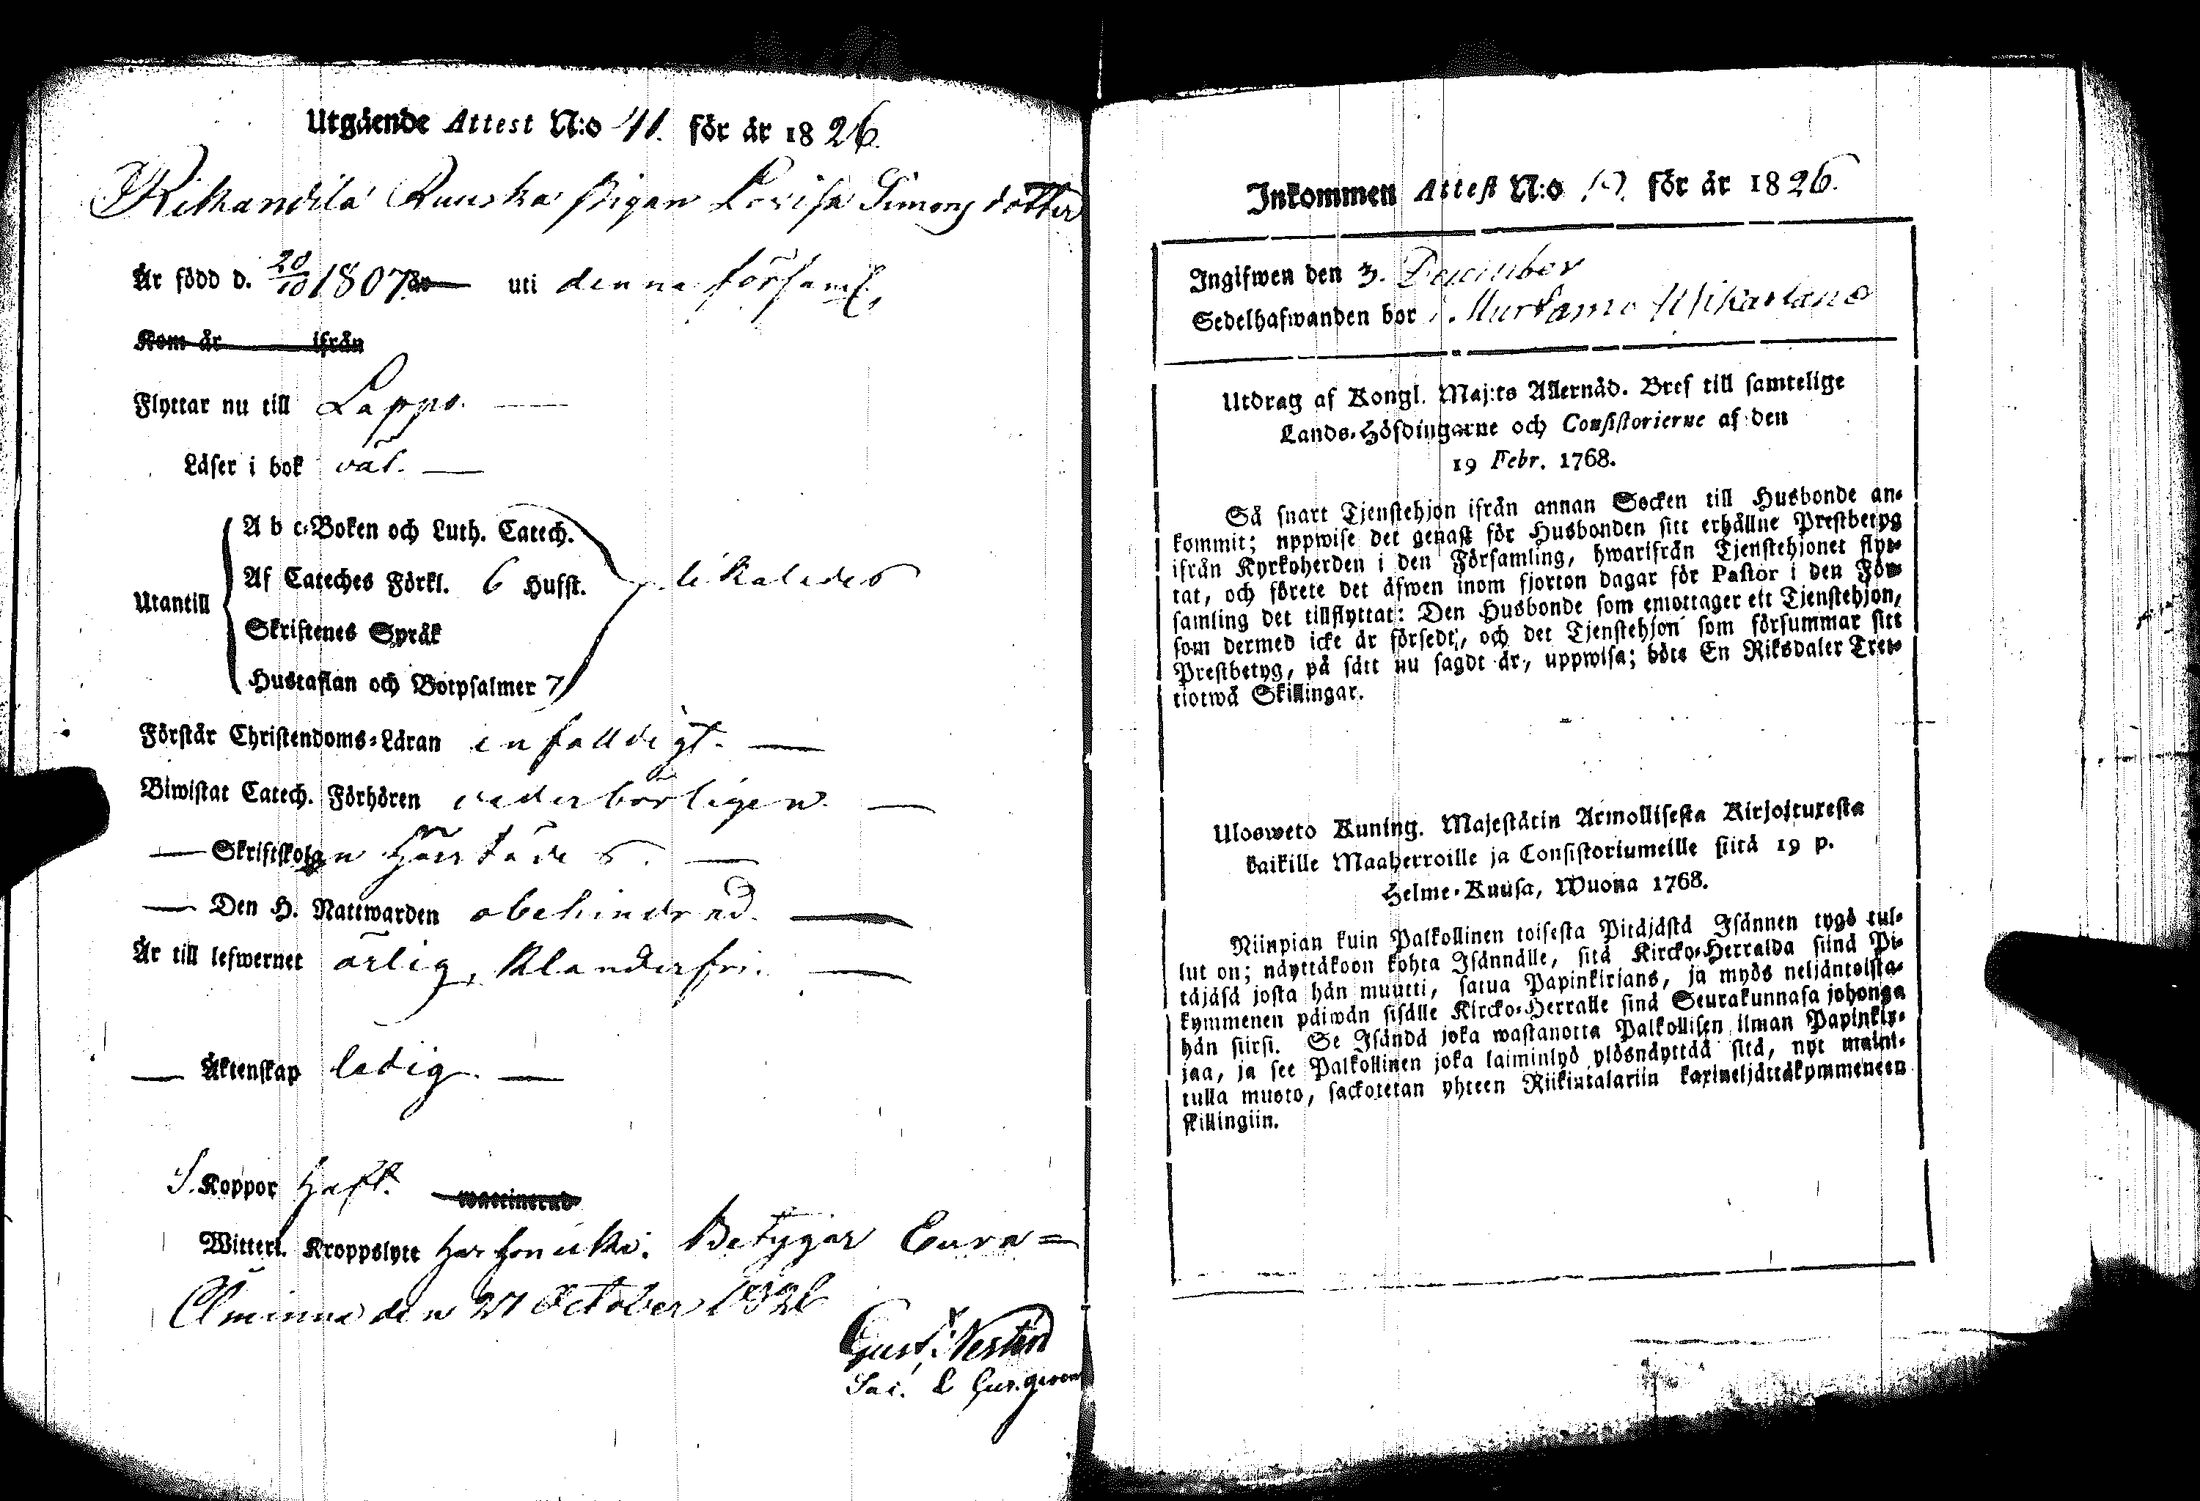 Utgående Attest N:o 41. för år 1826.
Kikandila Ruuska pigan Lovisa Simons dotter
Är född d. 20/10 1807. uti denna församl.
Kom år ifrån
Flyttar nu till Lappo.
Läser i bok väl.
Utantill
A b c-Boken och Luth. Catech.
Af Cateches Förkl. 6 Hufst.
likaledes
Skriftenes Språk
Hustaflan och Botpsalmer 7
Förstår Christendoms-Läran enfaldigt.
Biwistat Catech. Förhören vederbörligen
— Skriftskolan
— Den H. Nattwarden obehindrad.
Är till lefwernet ärlig, klanderfri.
— Äktenskap ledig.
S. Koppor haft. waccinerad
Witterl. Kroppslyte har hon icke. Betygar Eura=
Åminne den 27 October 1826
Gust. Nestén
Sac.
Inkommen Attest N:o för år 1826.
Ingifwen den 3. December
Sedelhafwanden bor i Murtamo Mikarlano
Utdrag af Kongl. Maj:ts Allernåd. Bref till samtelige
Lands-Höfdingarne och Consistorierne af den
19 Febr. 1768.
Så snart Tjenstehjon ifrån annan Socken till Husbonde an-
kommit; uppwise det genast för Husbonden sitt erhållne Prestbetyg
ifrån Kyrkoherden i den Församling, hwarifrån Tjenstehjonet flyt-
tat, och förete det äfwen inom fjorton dagar för Pastor i den För-
samling det tillflyttat: Den Husbonde som emottager ett Tjenstehjon,
som dermed icke är försedt, och det Tjenstehjon som försummar sitt
Prestbetyg, på sätt nu sagdt är, uppwisa; böte En Riksdaler Tret-
tiotwå Skillingar.
Ulosweto Kuning. Majestätin Armollisesta Kirjoituxesta
kaikille Maaherroille ja Consistoriumeille siitä 19 p.
Helme-Kuusa, Wuona 1768.
Niinpian kuin Palkollinen toisesta Pitäjästä Isännen tygö tul-
lut on; näyttäkoon kohta Isännälle, sitä Kircko-Herralda siinä Pi-
täjäsä josta hän muutti, satua Papinkirjans, ja myös neljäntoista-
kymmenen päiwän sisälle Kircko-Herralle siinä Seurakunnasa johonga
hän siirsi. Se Isändä joka wastanotta Palkollisen ilman Papinkir-
jaa, ja see Palkollinen joka laiminlyö ylösnäyttää sitä, nyt maini-
tulla muoto, sackotetan yhteen Riikintalariin kaxineljättäkymmeneen
skillingiin.